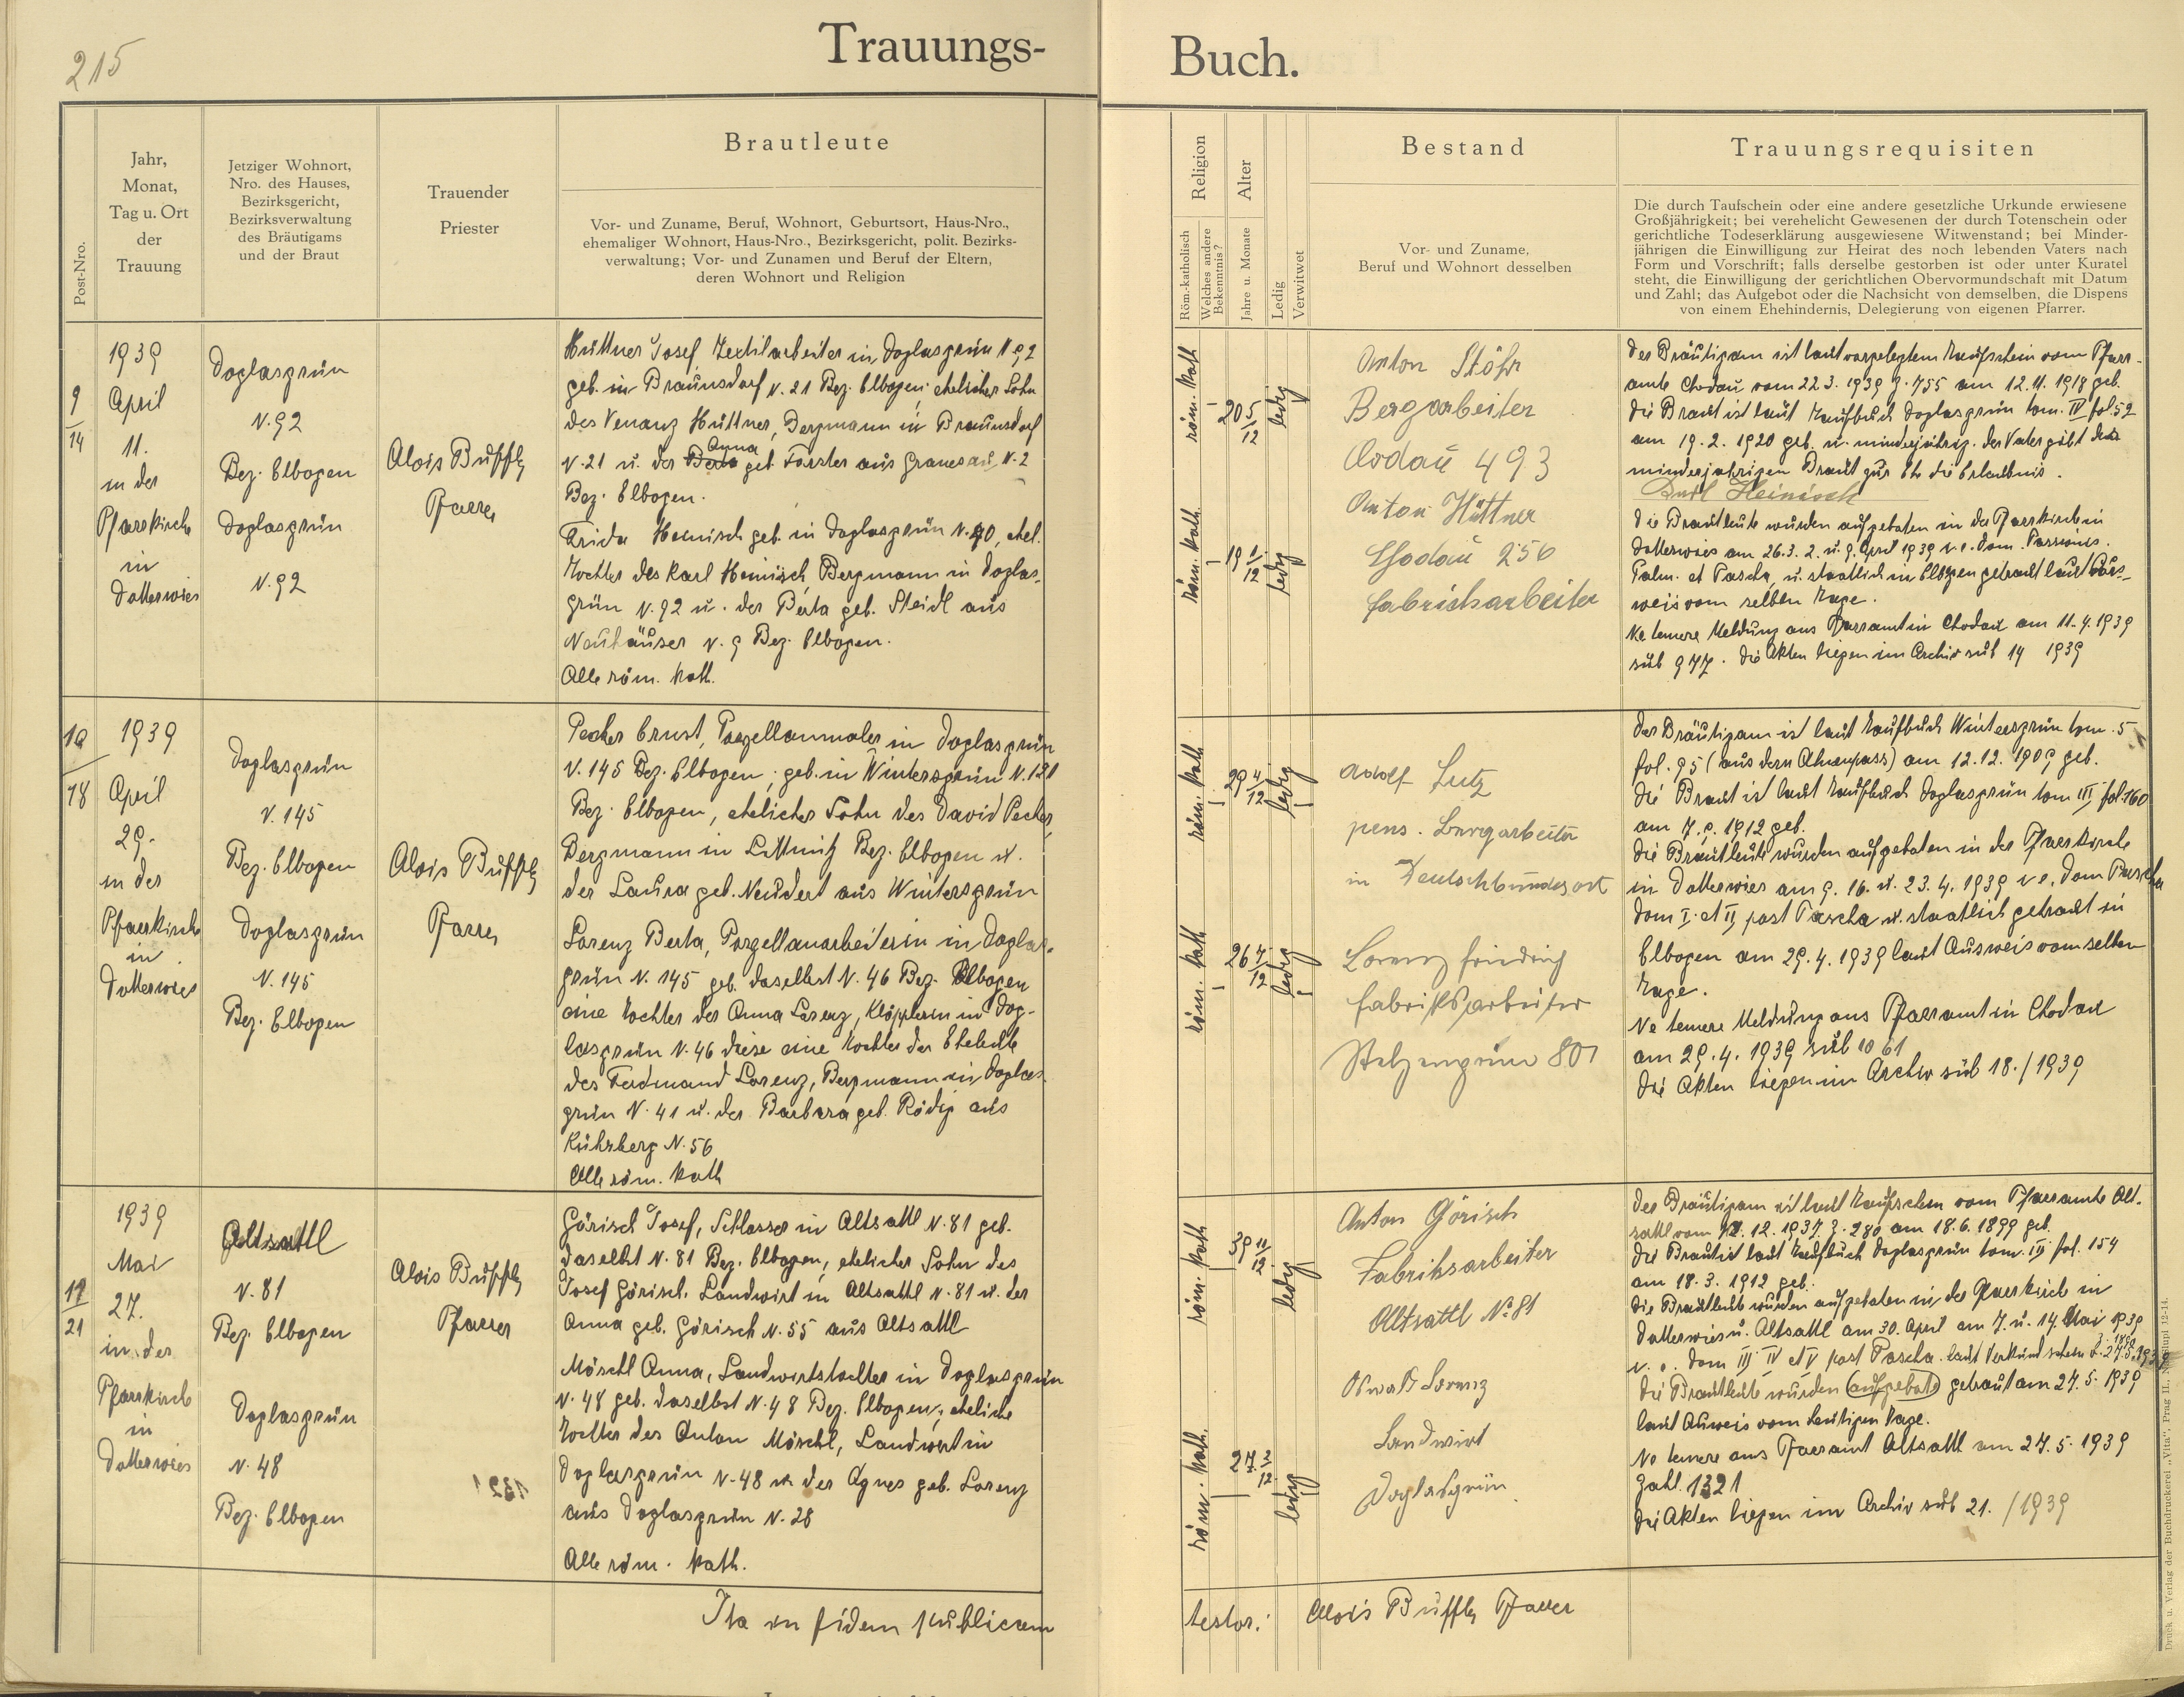 215
Trauungs-
Buch.
Post-Nro.
Jahr,
Monat,
Tag u. Ort
der
Trauung
Jetziger Wohnort,
Nro. des Hauses,
Bezirksgericht,
Bezirksverwaltung
des Bräutigams
und der Braut
Trauender
Priester
Brautleute
Vor- und Zuname, Beruf, Wohnort, Geburtsort, Haus-Nro.,
ehemaliger Wohnort, Haus-Nro., Bezirksgericht, polit. Bezirks-
verwaltung; Vor- und Zunamen und Beruf der Eltern,
deren Wohnort und Religion
Religion
Röm.-katholisch
Welches andere
Bekenntnis?
Alter
Jahre u. Monate
Ledig
Verwitwet
Bestand
Vor- und Zuname,
Beruf und Wohnort desselben
Trauungsrequisiten
Die durch Taufschein oder eine andere gesetzliche Urkunde erwiesene
Großjährigkeit; bei verehelicht Gewesenen der durch Totenschein oder
gerichtliche Todeserklärung ausgewiesene Witwenstand; bei Minder-
jährigen die Einwilligung zur Heirat des noch lebenden Vaters nach
Form und Vorschrift; falls derselbe gestorben ist oder unter Kuratel
steht, die Einwilligung der gerichtlichen Obervormundschaft mit Datum
und Zahl; das Aufgebot oder die Nachsicht von demselben, die Dispens
von einem Ehehindernis, Delegierung von eigenen Pfarrer.
9
14
1939
April
11.
in der
Pfarrkirche
in
Dotterwies
Doglasgrün
N. 92
Bez. Elbogen
Doglasgrün
N. 92
Alois Buffly
Pfarrer
Hüttner Josef Textilarbeiter in Doglasgrün N 92
geb. in Braunsdorf N. 21 Bez. Elbogen; ehelicher Sohn
des Venanz Hüttner, Bergmann in Braunsdorf
Anna
N. 21 u. der Berta geb. Forster aus Granesau, N. 2
Bez. Elbogen.
Frida Heinisch geb. in Doglasgrün N. 90, ehel.
Tochter des Karl Heinisch Bergmann in Doglas-
grün N. 92 u. der Berta geb. Steidl aus
Neuhäuser N. 9 Bez. Elbogen.
Alle röm. kath.
röm. kath
20 5/12
ledig
röm. kath.
19 1/12
ledig
Anton Stöhr
Bergarbeiter
Codau 493
Anton Hüttner
Chodau 256
fabrickarbeiter
Der Bräutigam ist laut vorgelegtem Taufschein vom Pfarr-
amte Chodau vom 22. 3. 1939 Z. 755 am 12. 11. 1918 geb.
Die Braut ist laut Taufbuch Doglasgrün tom. IV fol 52
am 19. 2. 1920 geb. u. minderjährig. Der Vater gibt der
minderjährigen Braut zur Ehe die Erlaubnis.
Karl Heinisch
Die Brautleute wurden aufgeboten in der Pfarrkirche in
Dotterwies am 26. 3. 2. u. 9. April 1939 v. e. Dom. Passionis.
Palm. et Pascha, u. staatlich in Elbogen getraut laut Aus-
weis vom selben Tage.
Ne temere Meldung ans Pfarramt in Chodau am 11. 4. 1939
sub 977. Die Akten liegen im Archiv sub 14 1939
10
18
1939
April
29.
in der
Pfarrkirche
in
Dotterwies
Doglasgrün
N. 145
Bez. Elbogen
Doglasgrün
N. 145
Bez. Elbogen
Alois Buffly
Pfarrer
Pecher Ernst, Porzellanmaler in Doglasgrün
N. 145 Bez. Elbogen, geb. in Wintersgrün N. 121
Bez. Elbogen, ehelicher Sohn des David Pecher,
Bergmann in Littmitz Bez. Elbogen u.
der Laura geb. Neudert aus Wintersgrün
Lorenz Berta, Porzellanarbeiterin in Doglas-
grün N. 145 geb. daselbst N. 46 Bez. Elbogen
eine Tochter der Anna Lorenz, Klöpplerin in Dog-
lasgrün N. 46 diese eine Tochter der Eheleute
des Ferdinand Lorenz, Bergmann in Doglas-
grün N. 41 u. der Barbara geb. Rödig aus
Kührberg N. 56
Alle röm. kath
röm. kath
29 4/12
ledig
röm. kath
26 7/12
ledig
Adolf Lutz
pens. Bergarbeiter
in Deutschbundesort
Lorenz friedrich
fabriksarbeiter
Stelzengrün 801
Der Bräutigam ist laut Taufbuch Wintersgrün tom. 5
fol. 95 (aus dem Ahnenpass) am 12. 12. 1909 geb.
Die Braut ist laut Taufbuch Doglasgrün tom III fol. 160
am 7. 9. 1912 geb.
Die Brautleute wurden aufgeboten in der Pfarrkirche
in Dotterwies am 9. 16. u. 23. 4. 1939 v. e. Dom Pascha
Dom I. et II post Pascha u. staatlich getraut in
Elbogen am 29. 4. 1939 laut Ausweis vom selben
Tage.
Ne temere Meldung ans Pfarramt in Chodau
am 29. 4. 1939 sub 1061
Die Akten liegen im Archiv sub 18. / 1939
21
1939
Mai
27.
in der
Pfarrkirche
in
Dotterwies
Altsattl
N. 81
Bez. Elbogen
Doglasgrün
N. 48
Bez. Elbogen
Alois Buffly
Pfarrer
Görisch Josef, Schlosser in Altsattl N. 81 geb.
daselbst N. 81 Bez. Elbogen, ehelicher Sohn des
Josef Görisch, Landwirt in Altsattl N. 81 u. der
Anna geb. Görisch N. 55 aus Altsattl
Möschl Anna, Landwirtstochter in Doglasgrün
N. 48 geb. daselbst N. 48 Bez. Elbogen; eheliche
Tochter des Anton Möschl, Landwirt in
Doglasgrün N. 48 u. der Agnes geb. Lorenz
aus Doglasgrün N. 28
Alle röm. kath.
röm. kath
39 11/12
ledig
röm. kath.
27 2/12
ledig
Anton Görisch
Fabriksarbeiter
Altsattl No 81
Oswald Lorenz
Landwirt
Doglasgrün
Der Bräutigam ist laut Taufschein vom Pfarramte Alt-
sattl vom 12. 1937 Z. 280 am 18. 6. 1899 geb.
Die Braut ist laut Taufbuch Doglasgrün tom. III fol. 154
am 18. 3. 1912 geb.
Die Brautleute wurden aufgeboten in der Pfarrkirche in
Dotterwies u. Altsattl am 30. April am 7. u. 14. Mai 1939
v. e. Dom III IV et V post Pascha. laut Verkündschein
Die Brautleute wurden (aufgebot) getraut am 27. 5. 1939
laut Ausweis vom heutigen Tage.
Ne temere ans Pfarramt Altsattl am 27. 5. 1939
Zahl. 1321
Die Akten liegen im Archiv sub 21. / 1939
Ita in fidem publicam
testor: Alois Buffly Pfarrer
Druck u. Verlag der Buchdruckerei „Vita", Prag II.,